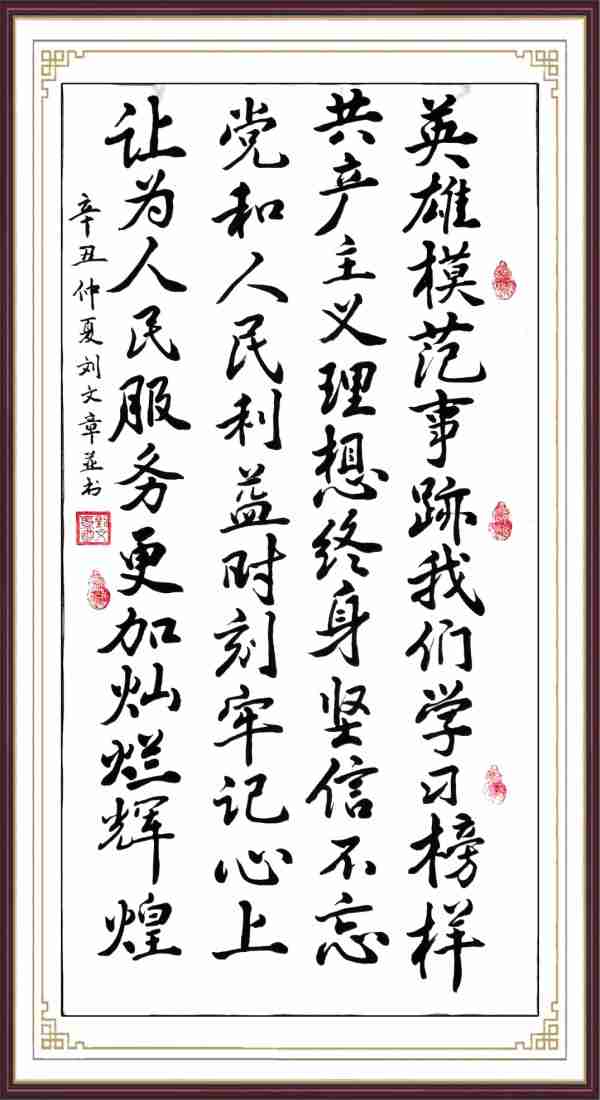 英雄模范事跡我们学习榜样
共产主义理想终身坚信不忘
党和人民利益时刻牢记心上
让为人民服务更加灿烂辉煌
辛丑仲夏刘文章並书